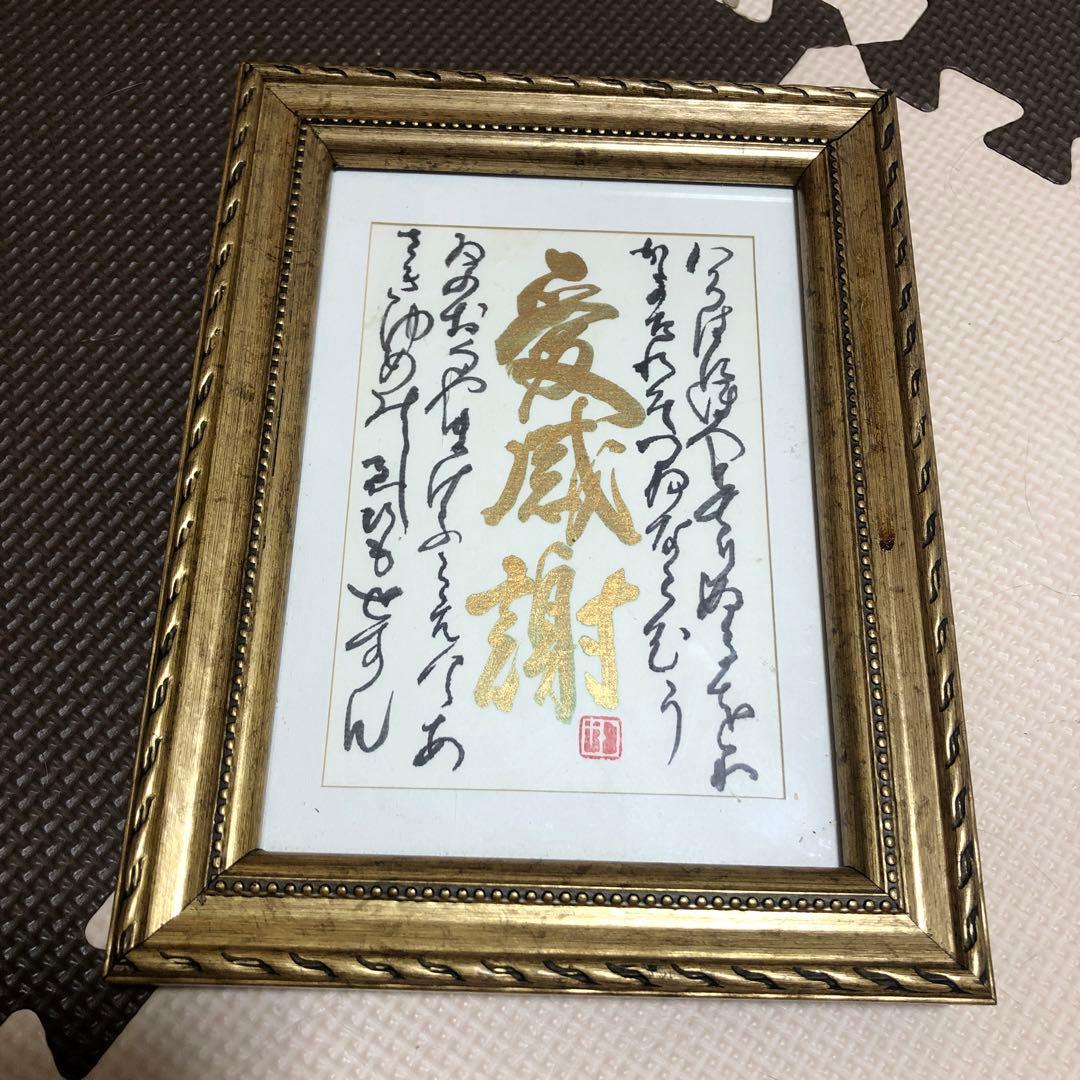 いろはにほへとちりぬるをわ
かよたれそつねならむう
愛感謝
ゐのおくやまけふこえてあ
さきゆめみしゑひもせすん